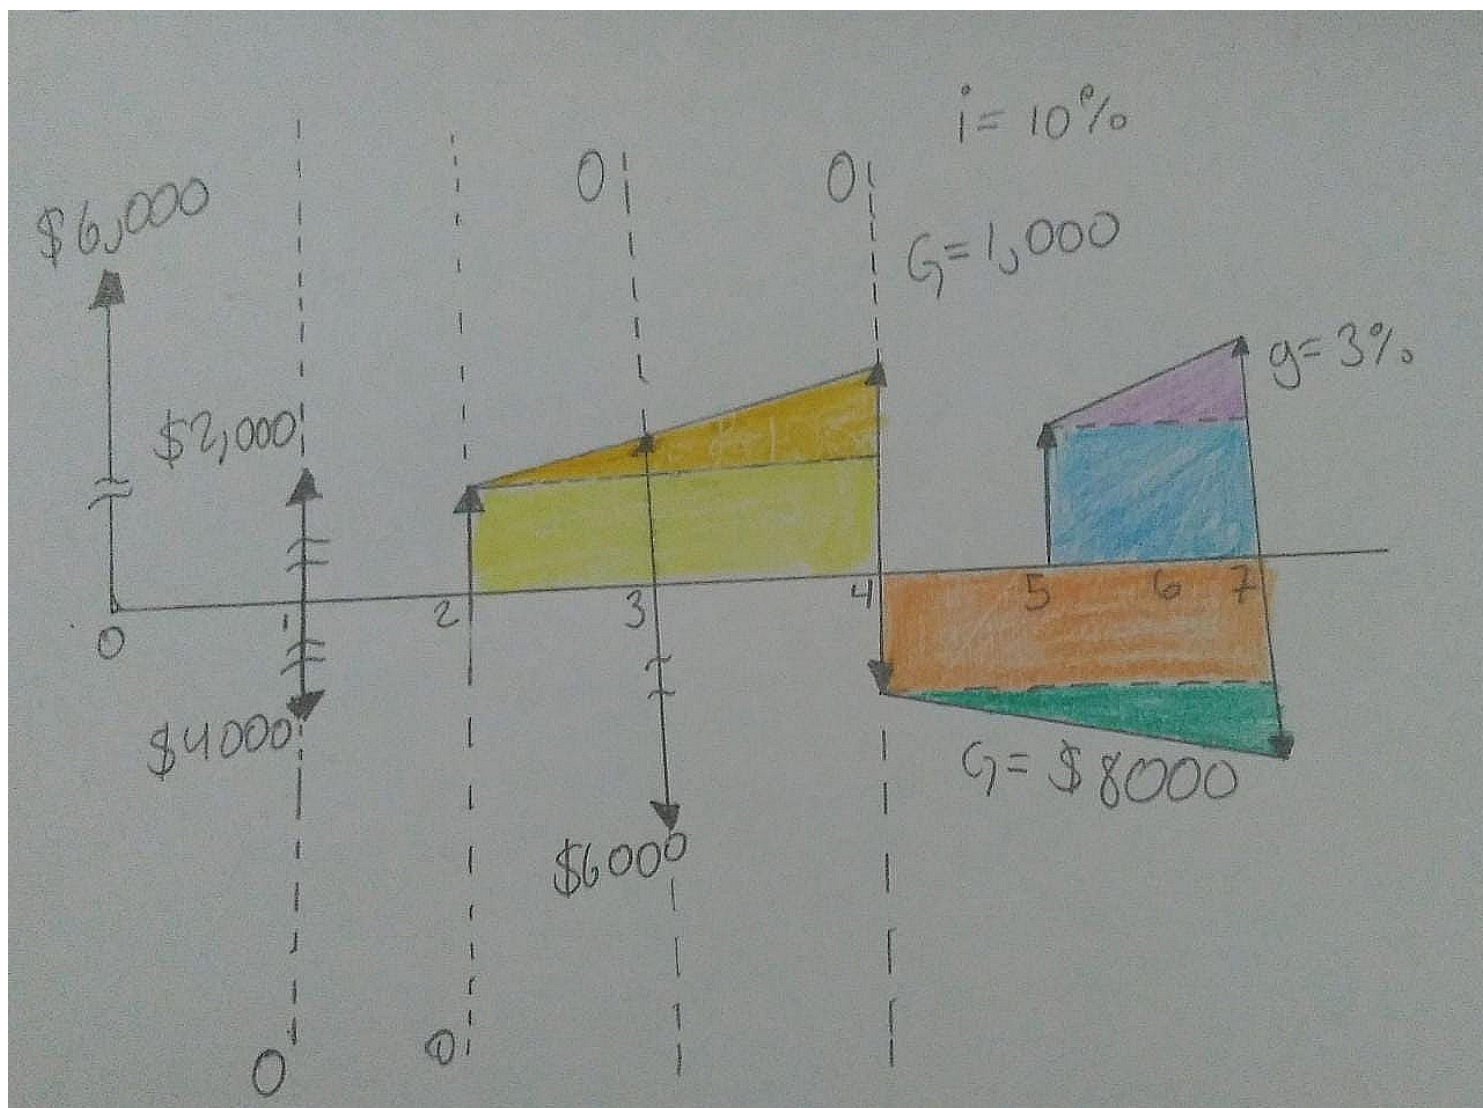 i= 10%
0
0
$6,000
G=1,000
g= 3%
$2,000
0
1
2
3
4
5
6
7
$4000
G= $8000
$6000
0
0